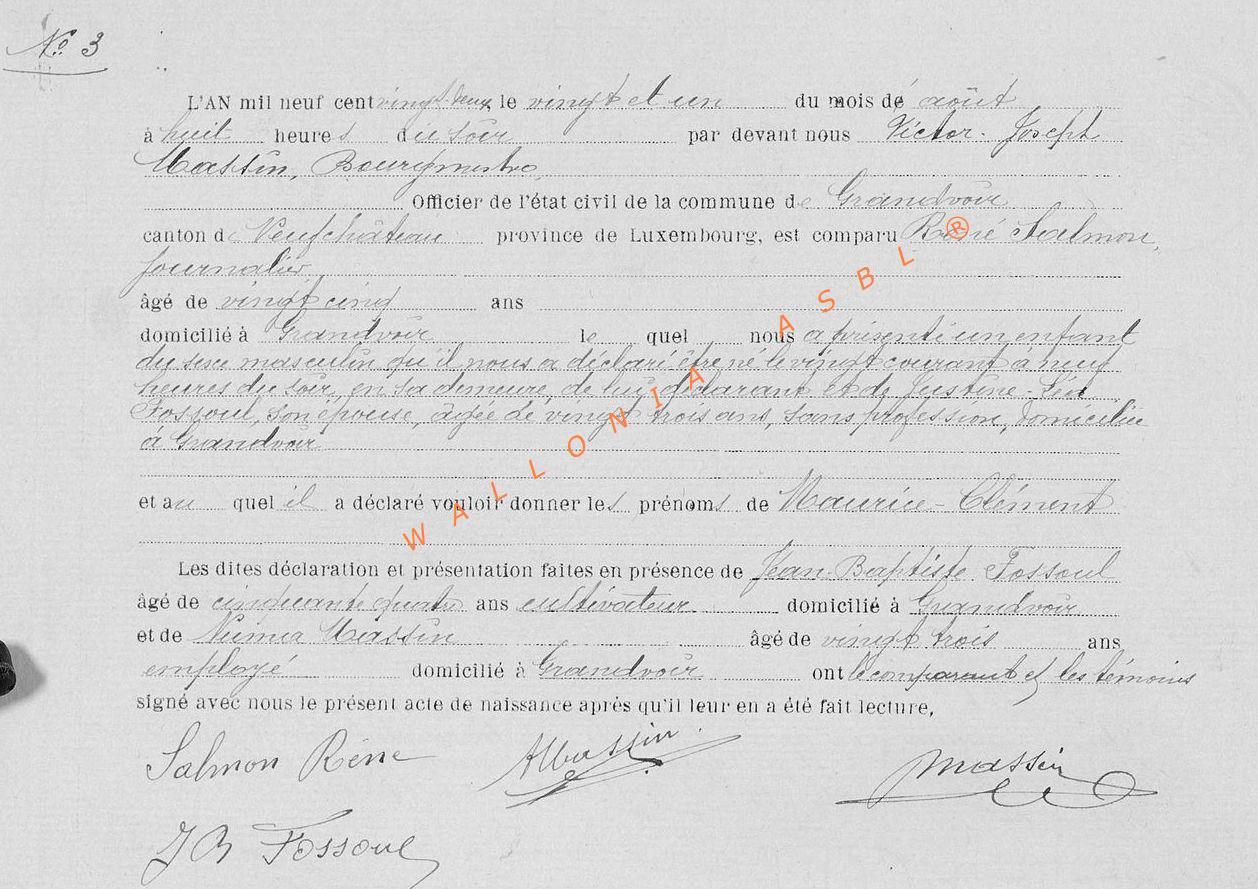 No. 3
L'AN mil neuf cent vingt deux le vingt et un du mois de août
à huit heures du soir par devant nous Victor-Joseph
Massin, Bourgmestre,
Officier de l'état civil de la commune de Grandvoir
canton de Neufchâteau province de Luxembourg, est comparu René Salmon,
journalier
âgé de vingt cinq ans
domicilié à Grandvoir le quel nous a présenté un enfant
du sexe masculin qu'il nous a déclaré être né le vingt courant à neuf
heures du soir, en sa demeure, de lui déclarant et de Justine-
Fossoul, son épouse, âgée de vingt trois ans, sans profession, domiciliée
à Grandvoir
et au quel il a déclaré vouloir donner les prénoms de Maurice-Clément
Les dites déclaration et présentation faites en présence de Jean-Baptiste Fossoul
âgé de cinquante quatre ans cultivateur domicilié à Grandvoir
et de Numa Massin âgé de vingt trois ans
employé domicilié à Grandvoir ont le comparant et les témoins
signé avec nous le présent acte de naissance après qu'il leur en a été fait lecture,
Salmon Réne
Massin
JB Fossoul
WALLONIA ASBL ®